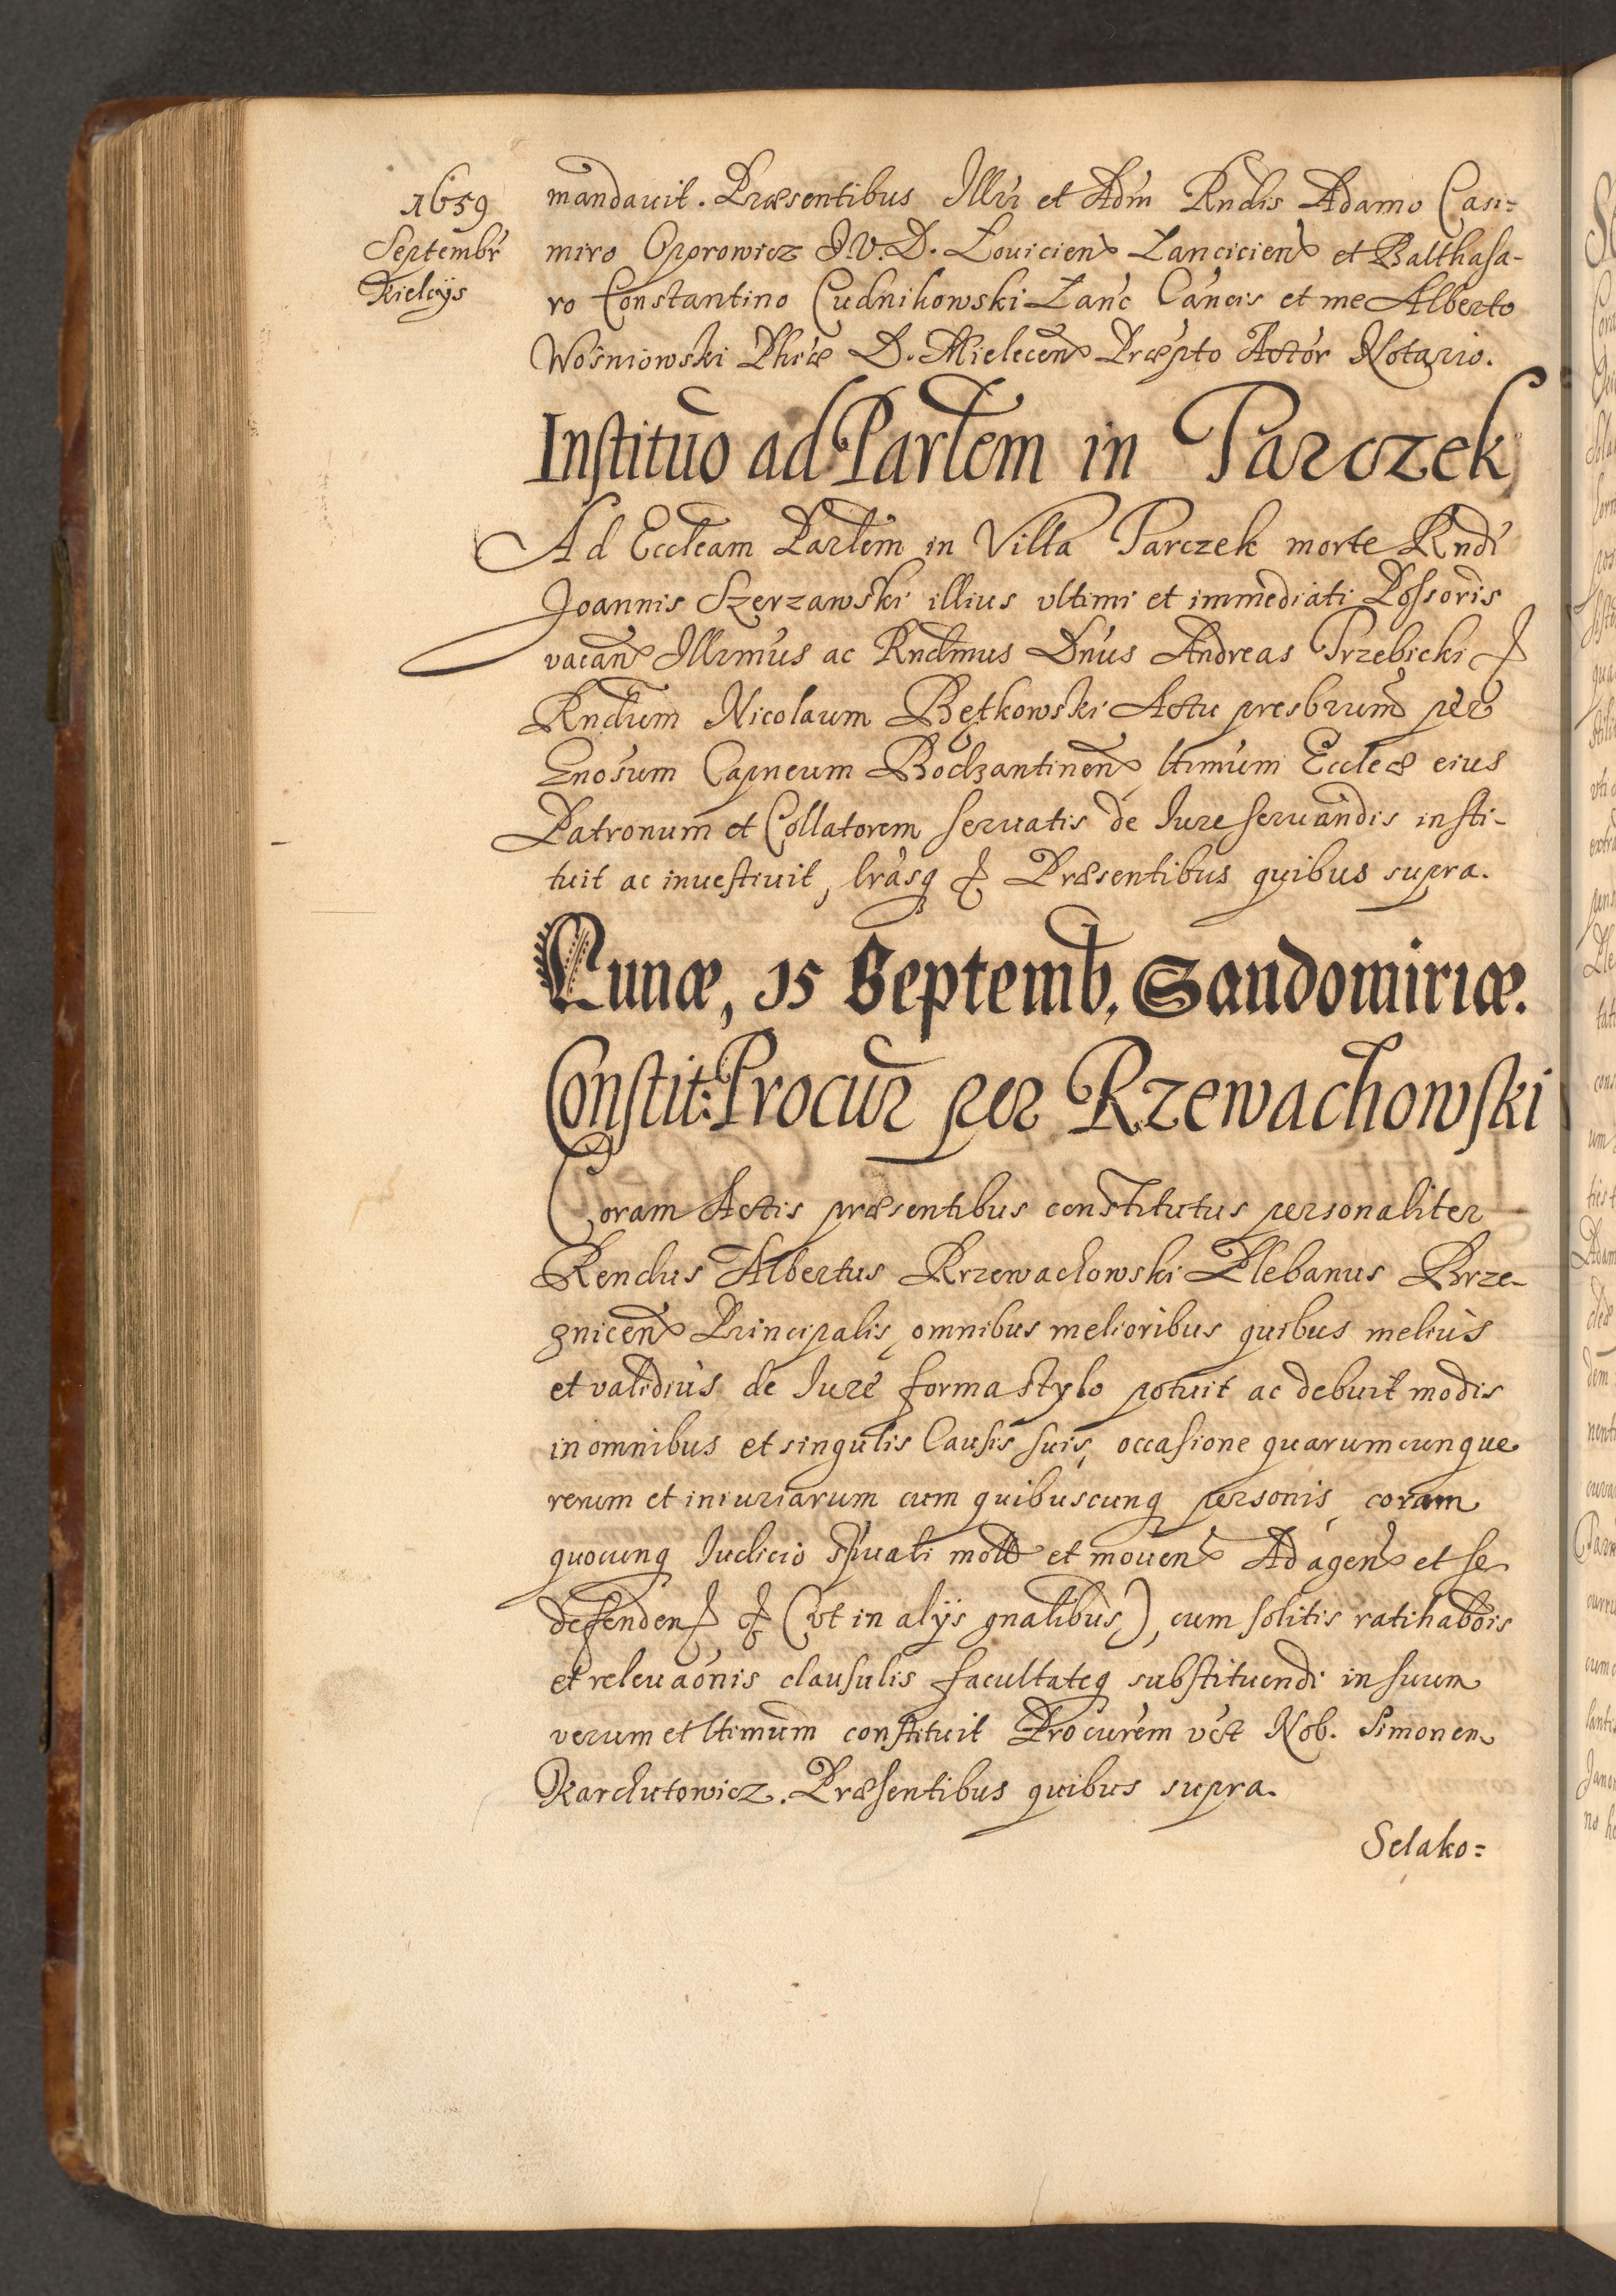 1659
Septembr
Kielcijs
mandavit. Præsentibus Illri et Adm Rndis Adamo Casi=
miro Oporowicz J.V.D. Loviciens Lanciciens et Balthasa-
ro Constantino Cudnikowski Lanc Cancis et me Alberto
Wośniowski Phiæ D. Mielecens Præpto Actor Notario.
Instituo ad Parlem in Parczek
Ad Eccleam Parlem in Villa Parczek morte Rndi
Joannis Szerzawski illius ultimi et immediati Possoris
vacan Illrmus ac Rndmus Dnus Andreas Trzebicki
Rndum Nicolaum Bętkowski Actu presbrum per
Gnosum Capneum Bodzantinen ltimum Eccleæ eius
Patronum et Collatorem servatis de Iure servandis insti-
tuit ac investivit, lrasq Præsentibus quibus supra.
Lunæ, 15 Septemb. Sandomiriæ.
Constit: Procur per Rzewachowski
Coram Actis præsentibus constitutus personaliter
Rendus Albertus Rrzewachowski Plebanus Brze-
znicen Principalis, omnibus melioribus quibus melius
et validius de Iure forma stylo potuit ac debuit modis
in omnibus et singulis Causis suis, occasione quarumcunque
rerum et iniuriarum cum quibuscunq personis, coram
quocunq Iudicio spuali mott et moven Ad agen et se
defenden (ut in alijs gnalibus), cum solitis ratihabois
et relevaonis clausulis facultateq substituendi in suum
verum et ltimum constituit Procurem Nob. Simonem
Karchutowicz. Præsentibus quibus supra.
Selako=